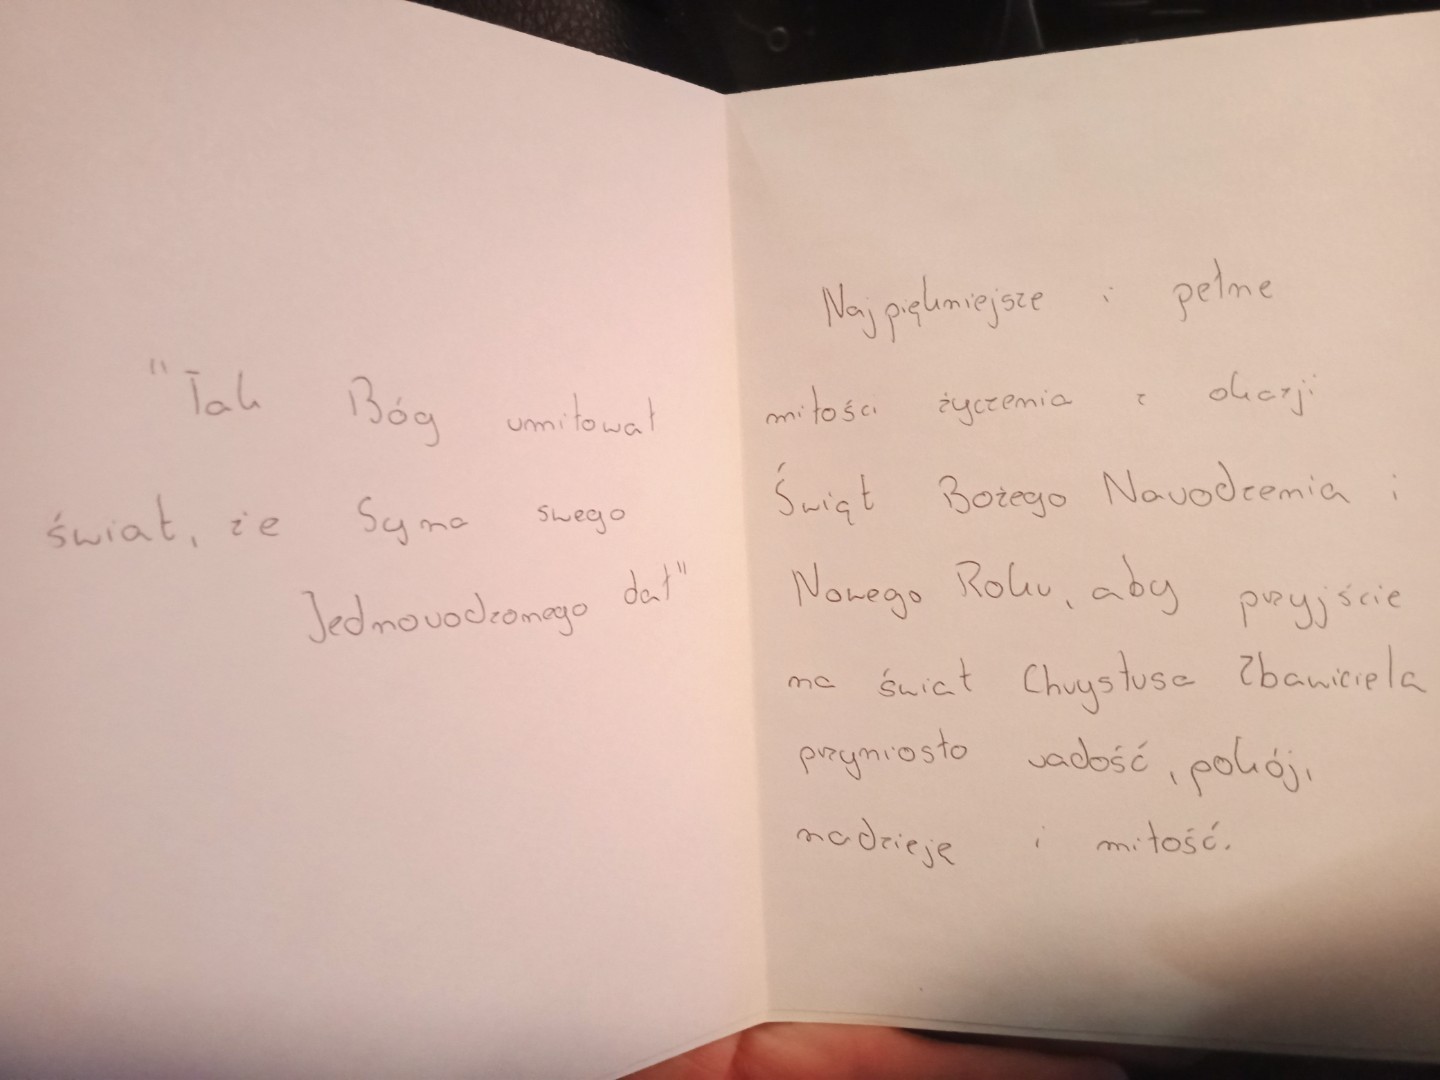 "Tak Bóg umiłował
świat, że Syna swego
Jednorodzonego dał"
Najpiękniejsze i pełne
miłości życzenia z okazji
Świąt Bożego Narodzenia i
Nowego Roku, aby przyjście
na świat Chrystusa Zbawiciela
przyniosło radość, pokój,
nadzieję i miłość.